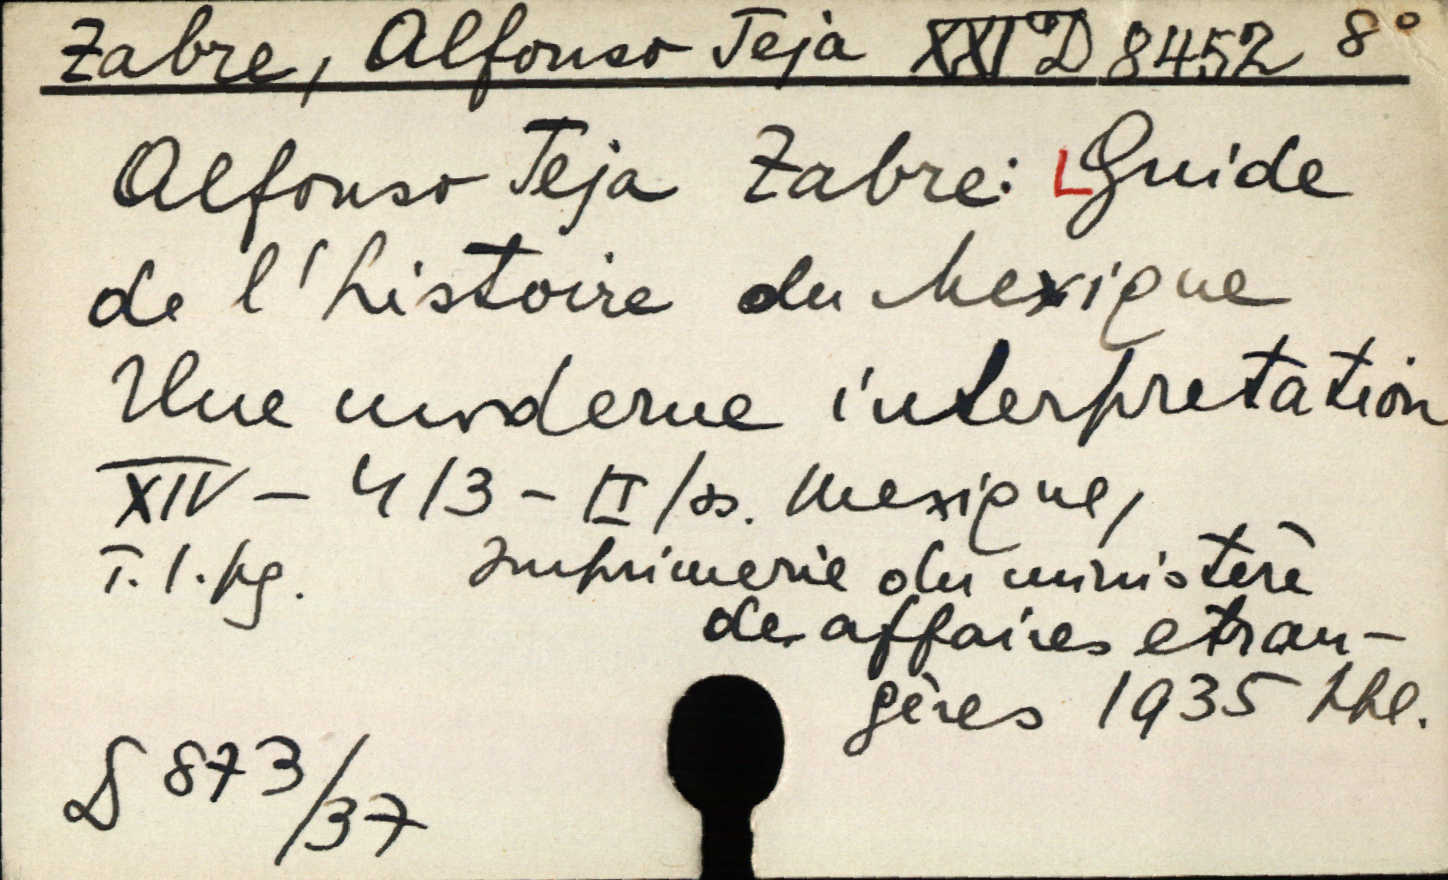 Zabre, Alfonso Teja XXI D 8452 8°
Alfonso Teja Zabre: Guide
de l'histoire du Mexique
Une moderne interpretation
XIV - 413 - II /ss. Mexique,
T. 1. pg. Imprimerie du ministère
de affaires etran-
gères 1935
D 873/37